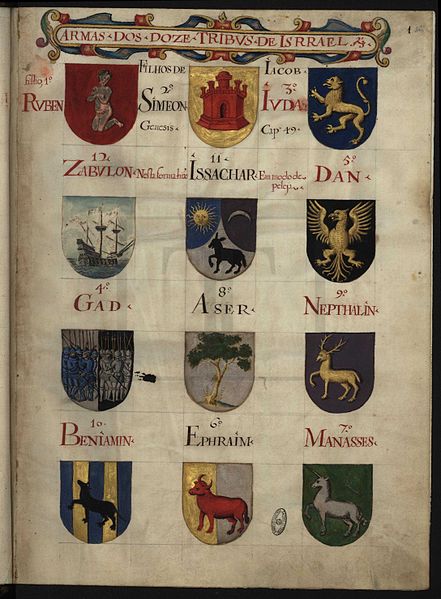 ARMAS·DOS·DOZE·TRIBVS·DE·ISRRAEL
1
FILHOS DE IACOB
filho 1º 2º 3º
RVBEN SIMEON IVDA
Genesis Cap. 49.
12. 11. 5º
ZABVLON Nesta forma ISSACHAR Em modo de DAN
4º 8º 9º
GAD ASER NEPTHALIN
10. 6º 7º
BENIAMIN EPHRAIM MANASSES